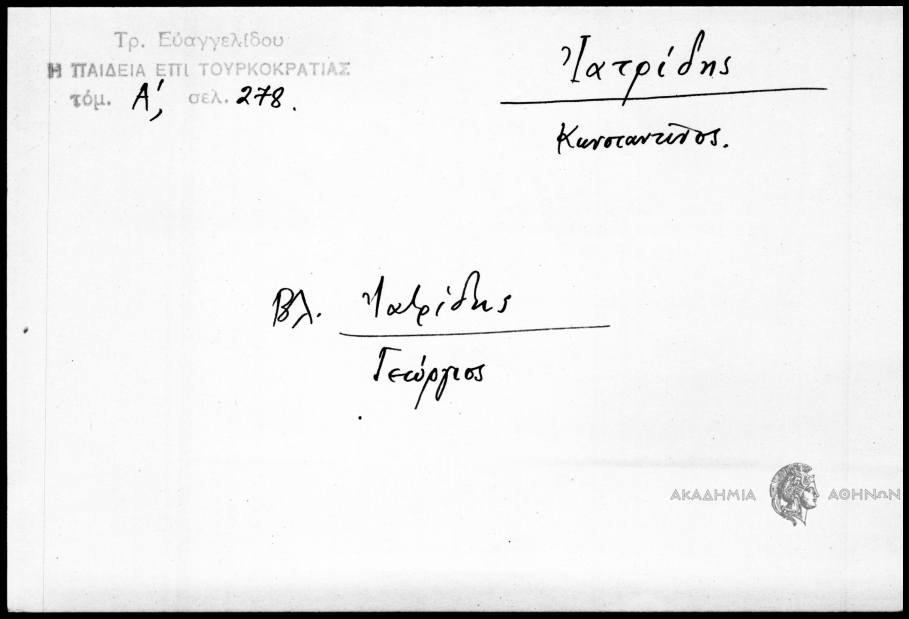 Τρ. Εὐαγγελίδου
Η ΠΑΙΔΕΙΑ ΕΠΙ ΤΟΥΡΚΟΚΡΑΤΙΑΣ
τόμ. Α΄, σελ. 278.
Ἰατρίδης
Κωνσταντῖνος.
Βλ. Ἰατρίδης
Γεώργιος
ΑΚΑΔΗΜΙΑ ΑΘΗΝΩΝ